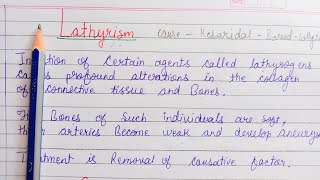 Lathyrism cause - Kesaridal -
of certain agents called lathyrogens
profound alterations in the collagen
of connective tissue and Bones.
Bones of Such individuals are soft,
arteries Become weak and develop aneurys
is Removal of causative factor.